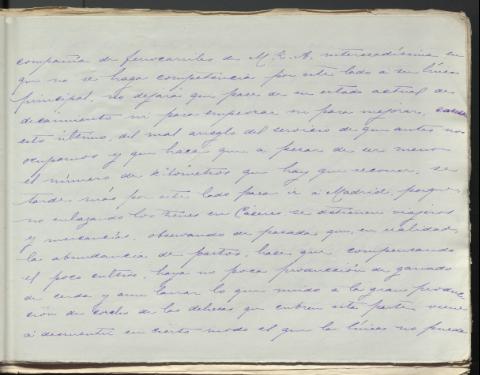 compañía de ferrocarriles de M. C. A. interesadísima en
que no se haga competencia por este lado a su línea
principal, no dejará que pase de su estado actual de
decaimiento ni para empeorar ni para mejorar,
esto último, del mal arreglo del servicio de que antes nos
ocupamos y que hace que a pesar de ser menos
el número de kilómetros que hay que recorrer, se
tarde más por este lado para ir a Madrid, porque
no enlazando los trenes en Cáceres se detienen viajeros
y mercancías, observando de pasada que, en realidad,
la abundancia de pastos, hace que compensando
el poco cultivo, haya no poca producción de ganado
de cerda y aun lanar lo que unido a la gran produc
ción de corcho de las dehesas que cubren esta parte, viene
a desmentir en cierto modo el que la línea no puede